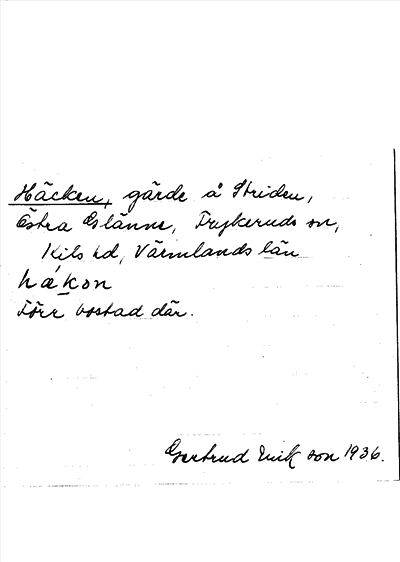 Häcken, gärde å Striden,
Östra Glänne, Frykeruds sn,
Kils hd, Värmlands län
hækon
Förr bostad där.
Gertrud Erikson 1936.